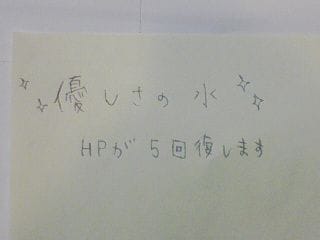 優しさの水
HPが5回復します